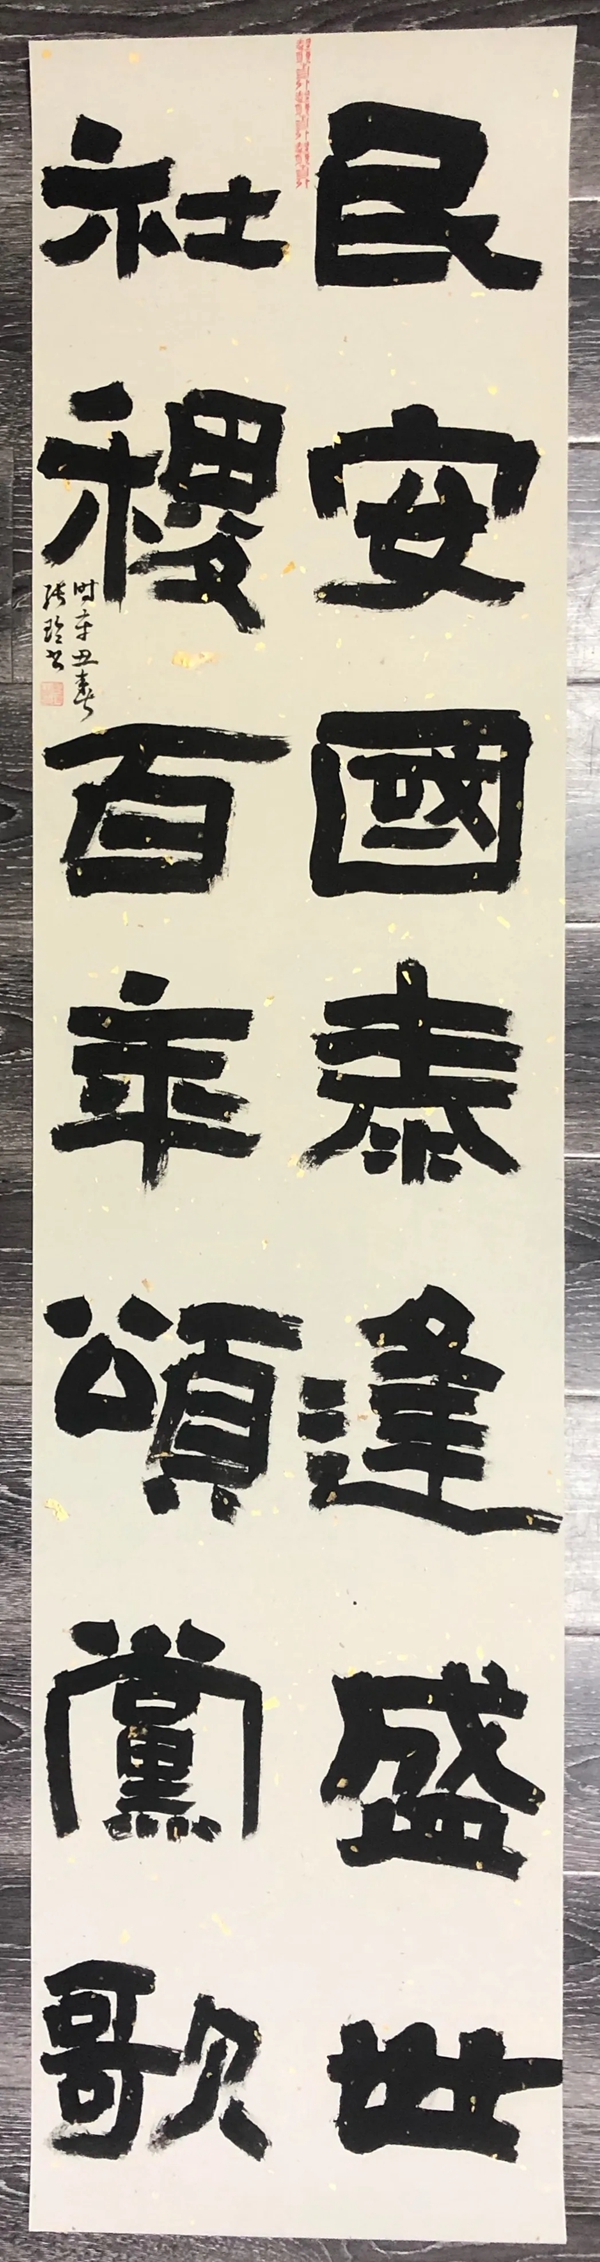 民安國泰逢盛世
社稷百年頌黨歌
时辛丑春
張玲书